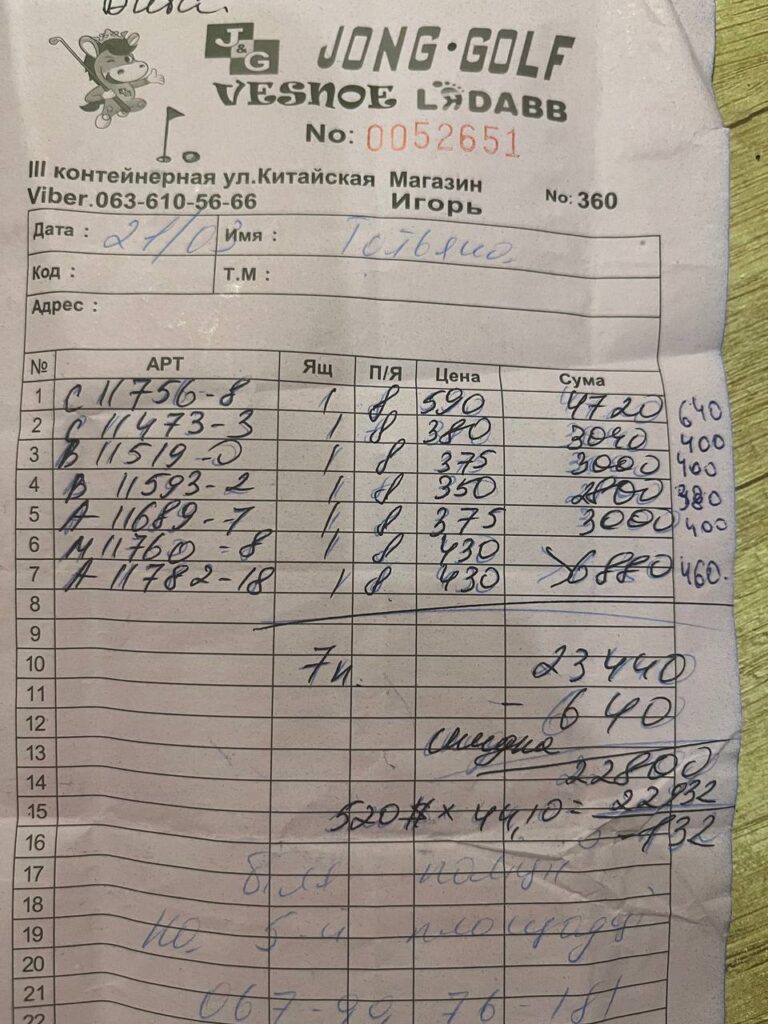 J&G JONG·GOLF
VESNOE LЯDABB
No: 0052651
III контейнерная ул.Китайская Магазин No: 360
Viber.063-610-56-66 Игорь
Дата : 21/03 Имя : Татьяна
Код : Т.М :
Адрес :
№ АРТ Ящ П/Я Цена Сума
1 С 11756-8 1 8 590 4720 640
2 С 11473-3 1 8 380 3040 400
3 В 11519-0 1 8 375 3000 400
4 В 11593-2 1 8 350 2800 380
5 А 11689-7 1 8 375 3000 400
6 М 11760=8 1 8 430
7 А 11782-18 1 8 430 6880 460.
8
9
10 7п. 23440
11 - 640
12 скидка
13 22800
14
15 520 $ × 44,10 = 22932
16 132
17 біля
18
19 на 5-й площадці
20
21 067-99 76-181
22